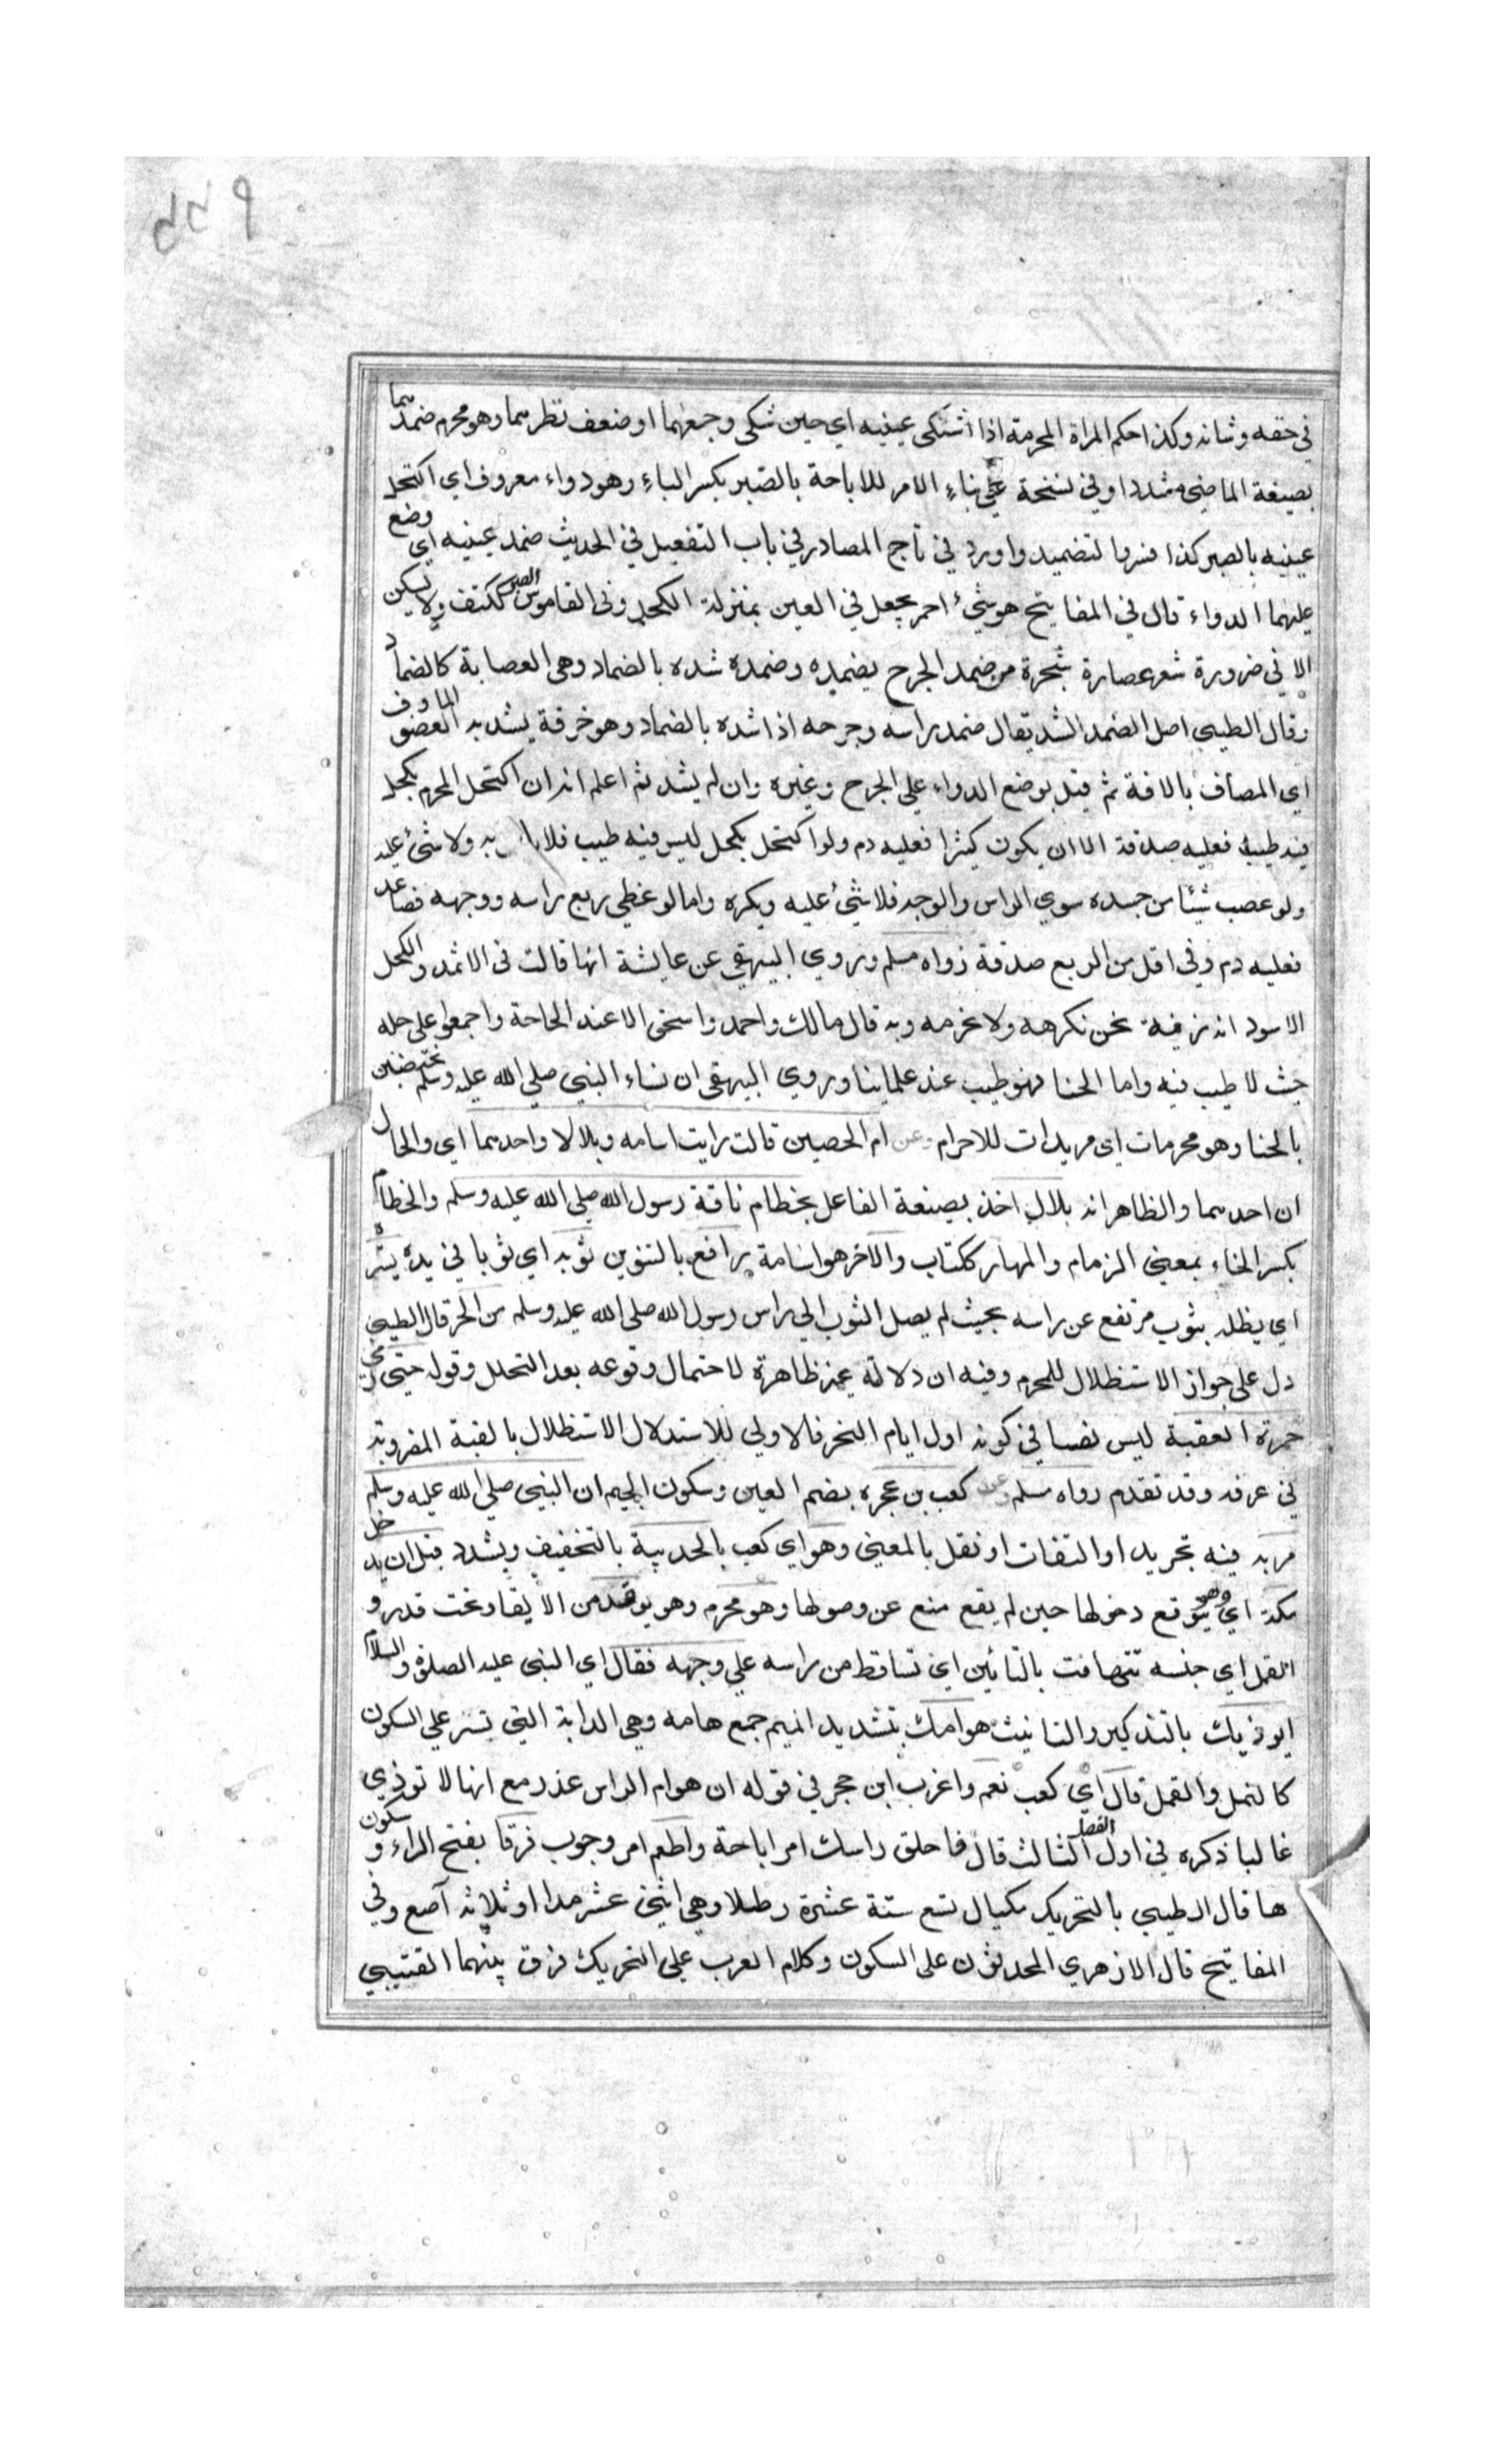 في حقه وشانه وكذا حكم المراة المحرمة اذا اشتكى عينيه اي حين شكى وجعهما او ضعف نظرهما وهو محرم ضمدهما
بصيغة الماضي مشددا وفي نسخة على بناء الامر للاباحة بالصبر بكسر الباء وهو دواء معروف اي اكتحل
عينيه بالصبر كذا فسر التضميد واورد في تاج المصادر في باب التفعيل في الحديث ضمد عينيه اي وضع
عليهما الدواء قال في المفاتيح هو شيء احمر يجعل في العين بمنزلة الكحل وفى القاموس الصبر ككتف ولا يسكن
الا في ضرورة شعر عصارة شجرة مر ضمد الجرح يضمده وضمده شده بالضماد وهى العصابة كالضماد
وقال الطيبي اصل الضمد الشد يقال ضمد راسه وجرحه اذا شده بالضماد وهو خرقة يشد به العضو الماوف
اي المصاف بالافة ثم قيل بوضع الدواء على الجرح وغيره وان لم يشد ثم اعلم انه ان اكتحل المحرم بكحل
فيه طيب فعليه صدقة الا ان يكون كيثرا فعليه دم ولو اكتحل بكحل ليس فيه طيب فلا باس به ولا شئ عليه
ولو عصب شيئا من جسده سوي الراس والوجه فلا شئ عليه ويكره واما لو غطى ربع راسه ووجهه فصاعدا
فعليه دم وفي اقل من الربع صدقة رواه مسلم وروي البيهقي عن عايشة انها قالت فى الاثمد والكحل
الاسود انه زينة نحن نكرهه ولا نحرمه وبه قال مالك واحمد واسحق الا عند الحاجة واجمعوا على حله
حيث لا طيب فيه واما الحنا فهو طيب عند علماينا وروي البيهقى ان نساء النبي صلى الله عليه وسلم يختضبن
بالحنا وهو محرمات اى مريدات للاحرام وعن ام الحصين قالت رايت اسامه وبلالا واحدهما اى والحال
ان احدهما والظاهر انه بلال اخذ بصيغة الفاعل بخطام ناقة رسول الله صلى الله عليه وسلم والخطام
بكسر الخاء بمعنى الزمام والمهار ككتاب والآخر هو اسامة رافع بالتنوين ثوبه اي ثوبا في يده يستره
اي يظله بثوب مرتفع عن راسه بحيث لم يصل الثوب الى راس رسول الله صلى الله عليه وسلم من الحر قال الطيبي
دل على جواز الاستظلال للمحرم وفيه ان دلالته غير ظاهرة لاحتمال وقوعه بعد التحلل وقوله حتى رمى
جمرة العقبة ليس نصا في كونه اول ايام النحر فالاولى للاستدلال الاستظلال بالقبة المضروبة
في عرفه وقد تقدم رواه مسلم وعن كعب بن عجره بضم العين وسكون الجيم ان النبى صلى الله عليه وسلم
مر به فيه تجريد او التفات او نقل بالمعنى وهو اي كعب بالحديبية بالتخفيف ويشدد قبل ان يدخل
مكة اي وهو يتوقع دخولها حين لم يقع منع عن وصولها وهو محرم وهو يوقد من الايقاد تحت قدر و
القمل اي جنسه تتهافت بالتائين اي تساقط من راسه على وجهه فقال اي النبى عليه الصلوة والسلام
ايوذيك بالتذكير والتانيث هوامك بتشديد الميم جمع هامه وهي الدابة التي تسير على السكون
كالنمل والقمل قال اي كعب نعم واغرب ابن حجر في قوله ان هوام الراس عذر مع انها لا توذي
غالبا ذكره في اول الفصل الثالث قال فاحلق راسك امر اباحة واطعم امر وجوب فرقا بفتح الراء وسكون
ها قال الطيبي بالتحريك مكيال تسع ستة عشرة رطلا وهي اثنى عشر مدا او ثلاثة آصع وفي
المفاتيح قال الازهري المحدثون على السكون وكلام العرب على التحريك فرق بينهما القتيبي